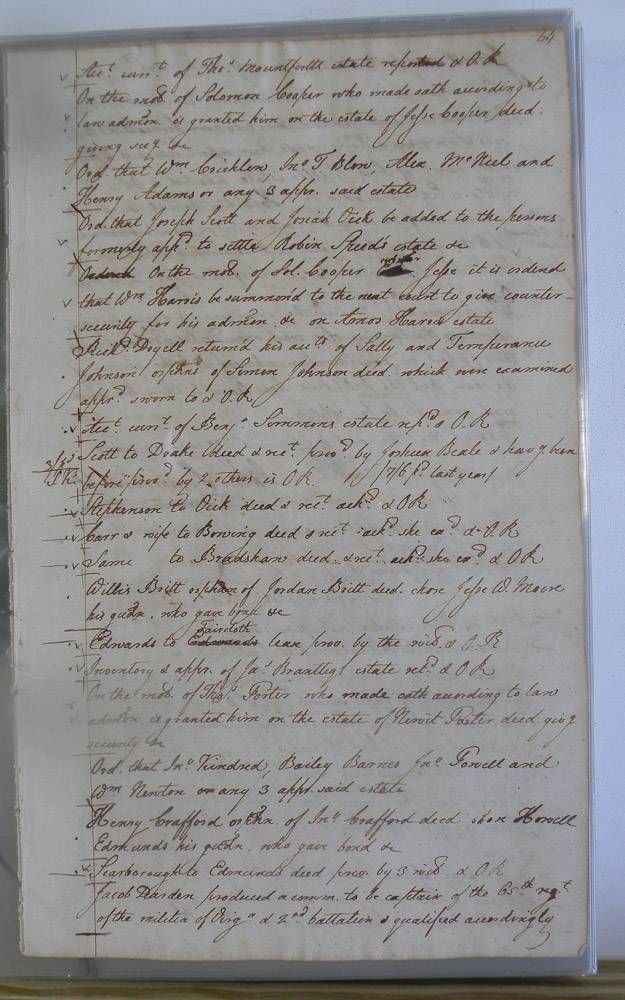 64
Acct. currt. of Thos. Mountfortts estate reported & O.R
On the mod. of Solomon Cooper who made oath according to
law admon. is granted him on the estate of Jesse Cooper deed.
giving secy. &c
Ord. that Wm Cricklow, Jno. T Blow, Alex. McNeel and
Henry Adams or any 3 appr. said estate
Ord. that Joseph Scott and Josiah Vick be added to the persons
formerly appd. to settle Robin Sneed's estate &c
On the mod. of Sol. Cooper Jesse it is ordered
that Wm Harris be summond to the next court to give counter-
security for his admon. &c on Amos Harris estate
Richd. Doyell returnd his accts. of Sally and Temperance
Johnson orphns of Simon Johnson deed. which were examined
apprd sworn to & O.R
Acct. currt. of Benja. Simmons estate repd. & O.R
Scott to Drake deed & rect. provd. by Joshua Beale & havg. been
before provd. by 2 others is O.R. /7/6 pd. last year/
Stephenson to Vick deed & rect. ackd. & OR
Carr & wife to Bowing deed & rect. ackd. she exd. & O.R
Same to Bradshaw deed & rect. ackd. she exd. & O.R
Willis Britt orphan of Jordan Britt deed. chose Jesse W. Moore
his gudn. who gave bond &c
Faircloth
Edwards to Edwards lease prov. by the wits. & O.R
Inventory & appr. of Jas. Brantley estate retd. & O.R
On the mod. of Thos. Porter who made oath according to law
admon is granted him on the estate of Porter deed givg.
security &c
Ord. that Jno. Kindred, Bailey Barnes Jno. Powell and
Wm Newton or any 3 appr. said estate
Henry Crafford orphn. of Jno. Crafford deed chose Howell
Edmunds his gudn. who gave bond &c
Scarborough to Edmunds deed prov. by 3 wits. & O.R
Jacob Darden produced a comm. to be captain of the 65th regt.
of the militia of Virga & 2nd battalion & qualified accordingly